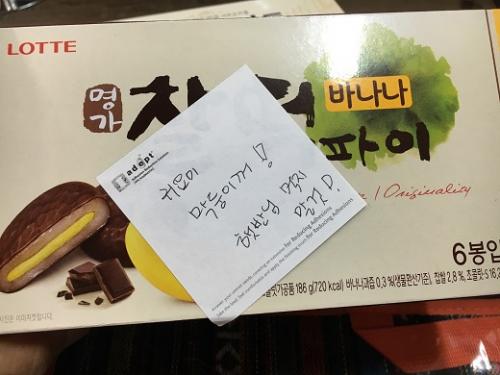 LOTTE
명가
찰
바나나
파이
Originality
6봉입
adept
귀요미
막둥이꺼!!
햇반님 먹지
말것!
for Reducing Adhesions
for Reducing Adhesions
186 g(720 kcal) 바나나과즙 0.3 %(생물환산기준), 찹쌀 2.8 %, 초콜릿